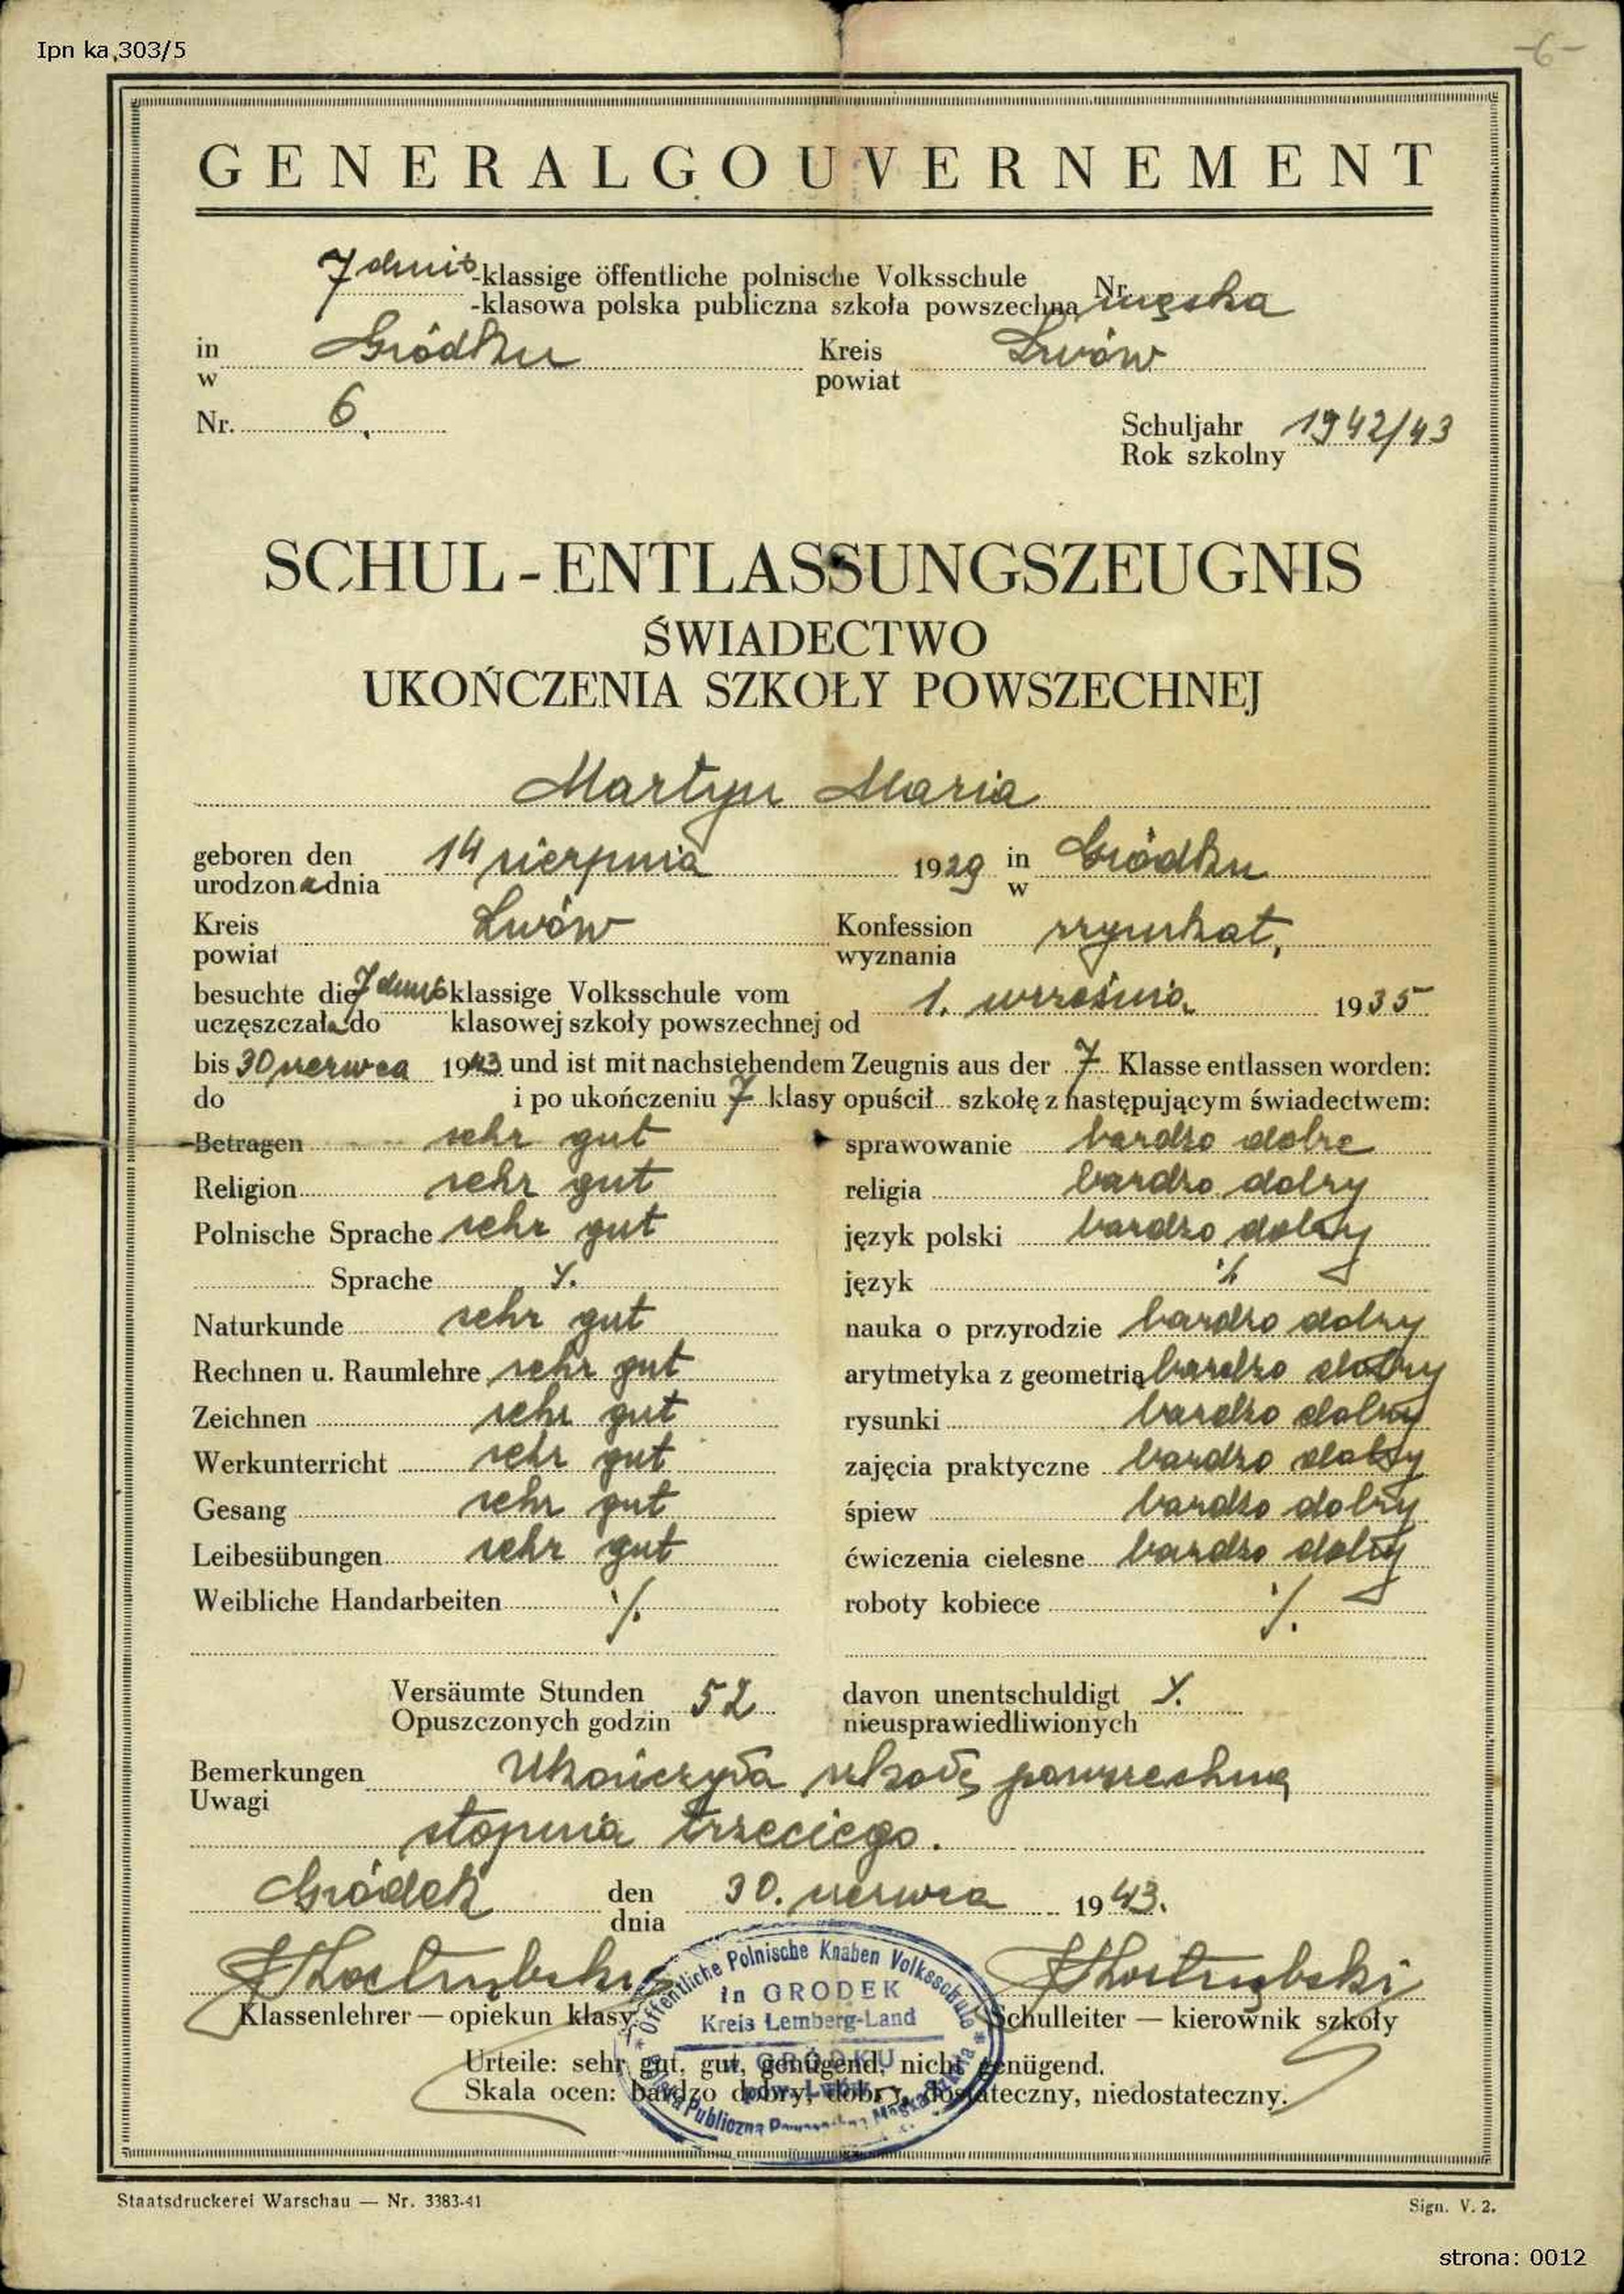 Ipn ka,303/5
-6-
GENERALGOUVERNEMENT
7 -klassige öffentliche polnische Volksschule Nr.
-klasowa polska publiczna szkoła powszechna męska
in Gródku Kreis Lwów
w powiat
Nr. 6. Schuljahr 1942/43
Rok szkolny
SCHUL-ENTLASSUNGSZEUGNIS
ŚWIADECTWO
UKOŃCZENIA SZKOŁY POWSZECHNEJ
Martyn Maria
geboren den 14 sierpnia 1929 in Gródku
urodzona dnia w
Kreis Lwów Konfession rzymkat.
powiat wyznania
besuchte die 7 klassige Volksschule vom 1. września 1935
uczęszczała do klasowej szkoły powszechnej od
bis 30 czerwca 1943 und ist mit nachstehendem Zeugnis aus der 7 Klasse entlassen worden:
do i po ukończeniu 7 klasy opuścił szkołę z następującym świadectwem:
Betragen sehr gut sprawowanie bardzo dobre
Religion sehr gut religia bardzo dobry
Polnische Sprache sehr gut język polski bardzo dobry
Sprache ·/. język ·/.
Naturkunde sehr gut nauka o przyrodzie bardzo dobry
Rechnen u. Raumlehre sehr gut arytmetyka z geometrią bardzo dobry
Zeichnen sehr gut rysunki bardzo dobry
Werkunterricht sehr gut zajęcia praktyczne bardzo dobry
Gesang sehr gut śpiew bardzo dobry
Leibesübungen sehr gut ćwiczenia cielesne bardzo dobry
Weibliche Handarbeiten ·/. roboty kobiece ·/.
Versäumte Stunden 52 davon unentschuldigt ·/.
Opuszczonych godzin nieusprawiedliwionych
Bemerkungen Ukończyła szkołę powszechną
Uwagi
stopnia trzeciego.
Gródek den 30. czerwca 1943.
dnia
Klassenlehrer — opiekun klasy Schulleiter — kierownik szkoły
Öffentliche Polnische Knaben Volksschule
in GRODEK
Kreis Lemberg-Land
w GRÓDKU
Urteile: sehr gut, gut, genügend, nicht genügend.
Skala ocen: bardzo dobry, dobry, dostateczny, niedostateczny.
Staatsdruckerei Warschau — Nr. 3383-41 Sign. V. 2.
strona: 0012